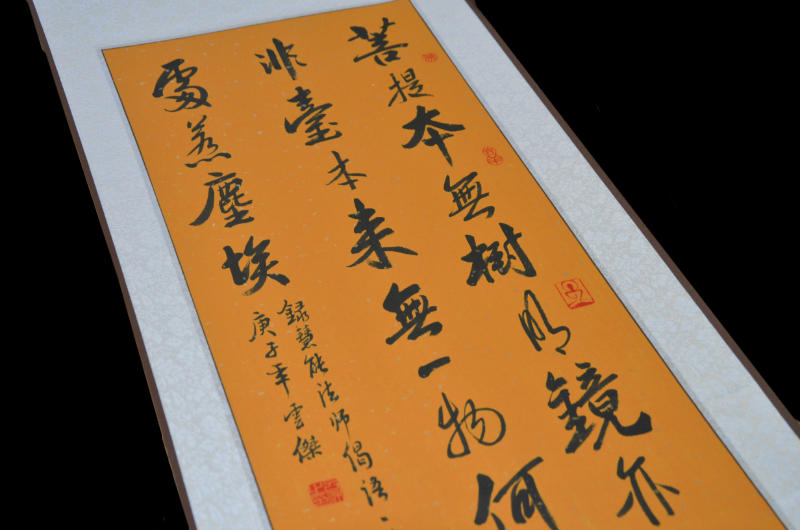 菩提本無樹明鏡亦
非臺本来無一物何
處惹塵埃
録慧能法师偈语
庚子年雲傑